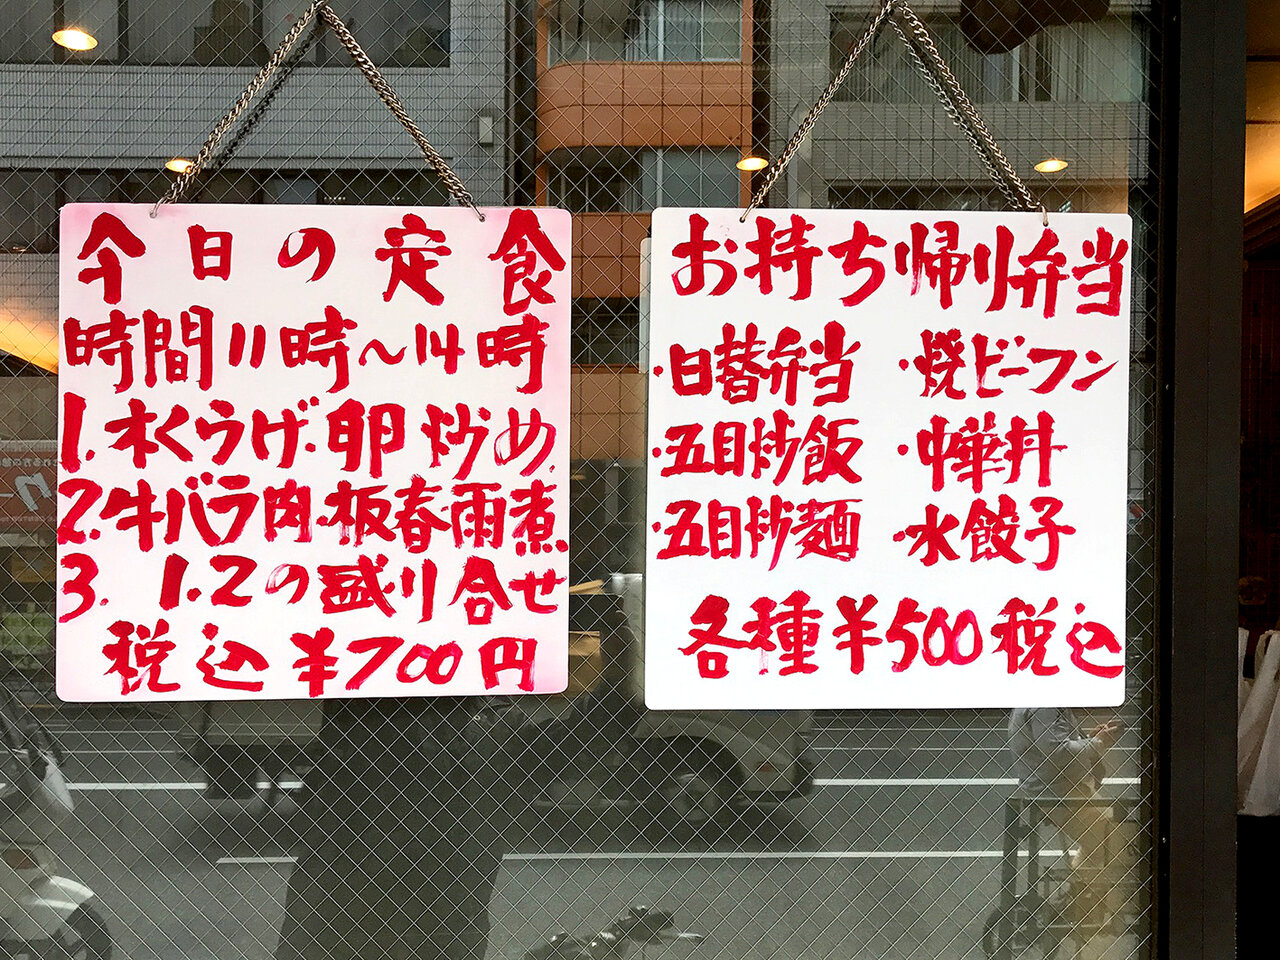 今日の定食
時間11時～14時
1.木くらげ.卵炒め
2.牛バラ肉.板春雨煮
3. 1.2の盛り合せ
税込¥700円
お持ち帰り弁当
・日替弁当 ・焼ビーフン
・五目炒飯 ・中華丼
・五目炒麺 ・水餃子
各種¥500税込